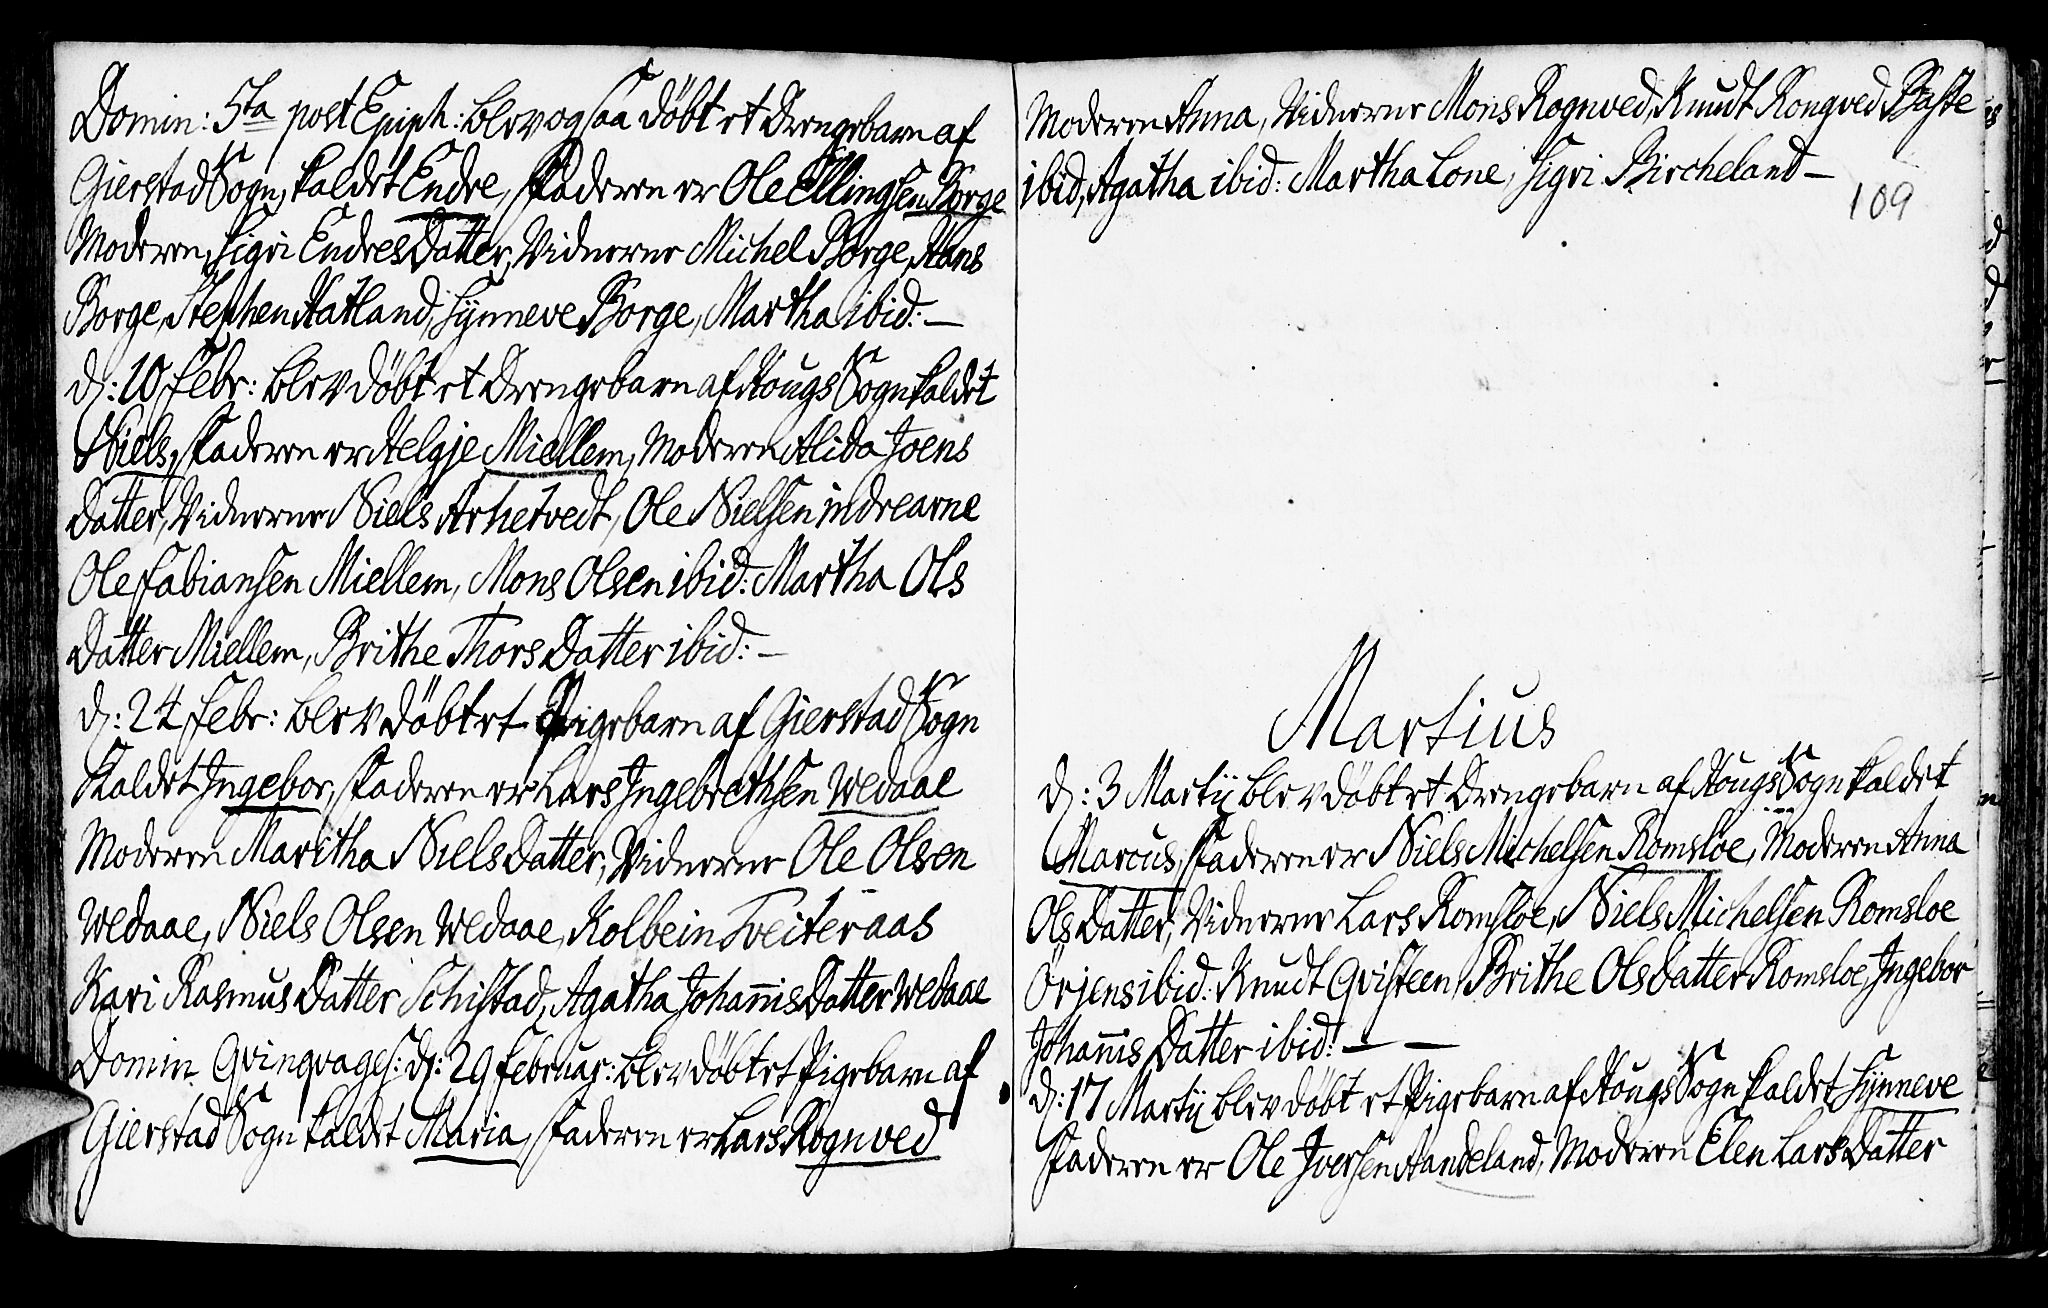 Domin: 5ta post Epiph: blev ogsaa döbt et Drengebarn af
Gierstad Sogn, kaldet Endre, Faderen er Ole Ellingsen Borge
Moderen, Sigri Endres Datter, Vidnerne Michel Borge, Hans
Borge, Stephen Hatland, Synneve Borge, Martha ibid: —
d: 10 Febr: blev döbt et Drengebarn af Hougs Sogn kaldet
Niels, Faderen er Helgje Miellem, Moderen Alida Joens
Datter, Vidnerne Niels Arhetvedt, Ole Nielsen indrearne
Ole Fabiansen Miellem, Mons Olsen ibid: Martha Ols
Datter Miellem, Brithe Thors Datter ibid: —
d: 24 Febr: blev döbt et Pigebarn af Gierstad Sogn
Kaldet Ingebor, Faderen er Lars Ingebrethsen Wedaae
Moderen Maritha Niels Datter, Vidnerne Ole Olsen
Wedaae, Niels Olsen Wedaae, Kolbein Tveiteraas
Kari Rasmus Datter Schistad, Agatha Johannis Datter Wedaae
Domin Qvinqvages: d: 29 Februar: blev döbt et Pigebarn af
Gierstad Sogn kaldet Maria, Faderen er Lars Rognved
Moderen Anna, Vidnerne Mons Rognved, Knudt Rongved Baste
ibid, Agatha ibid: Martha Lone, Sigri Bircheland —
109
Martius
d: 3 Martij blev döbt et Drengebarn af Hougs Sogn kaldet
Marcus, Faderen er Niels Michelsen Romsloe, Moderen Anna
Ols Datter, Vidnerne Lars Romsloe, Niels Michelsen Romsloe
Örjens ibid: Knudt Qvisteen, Brithe Ols Datter Romsloe, Ingebor
Johannis Datter ibid: — —
d: 17 Martij blev döbt et Pigebarn af Hougs Sogn kaldet Synneve
Faderen er Ole Iversen Handeland, Moderen Elen Lars Datter